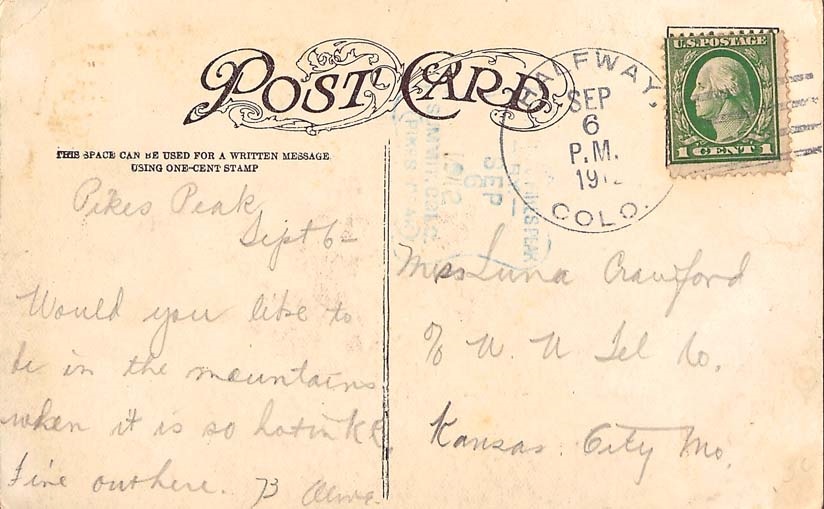 POST CARD.
HALFWAY,
SEP
6
P.M.
191
COLO.
U.S. POSTAGE
1 CENT 1
THIS SPACE CAN BE USED FOR A WRITTEN MESSAGE
USING ONE-CENT STAMP
SUMMIT, COLO.
1912
SEP
6
PIKES PEAK
Pikes Peak
Sept 6-
Would you like to
be in the mountains
when it is so hot in K.C.
Fine out here. 73
Miss Luna Crawford
c/o W. U Tel Co.
Kansas City Mo.